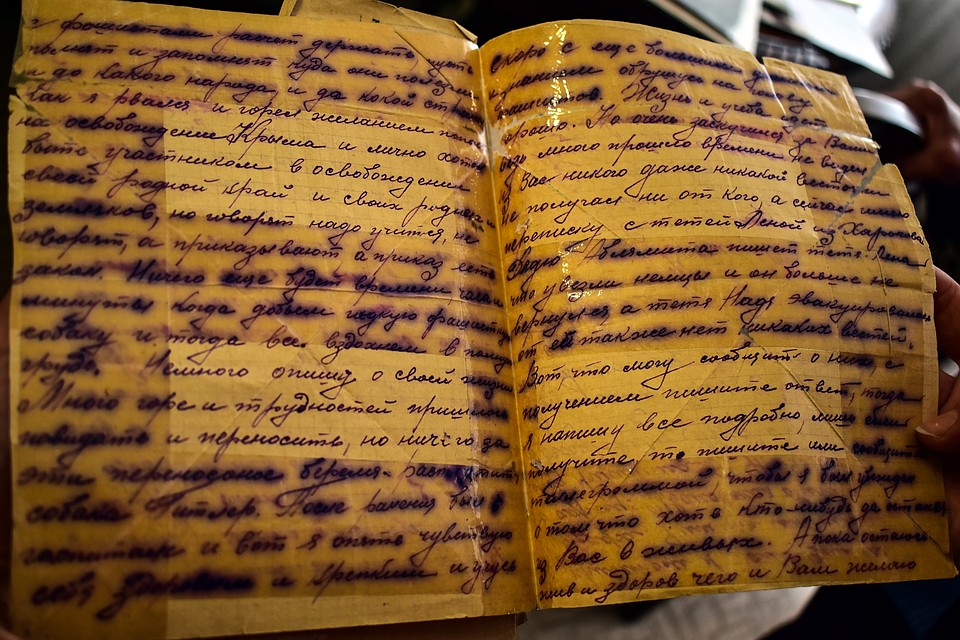 с фашистами расчет держать, шать
помнят и запомнят куда они
и до какого народа и до какой стр
Как я рвался и горел желанием
на освобождение Крыма и лично хотел
быть участником в освобождении
своей родной край и своих родных
земляков, но говорят надо учится, не
говорят, а приказывают а приказ есть
закон. Ничего еще будет время
минуты когда добьем гадкую фашистску
собаку и тогда все вздохнем в полну
грудь. Немного опишу о своей жизни
Много горе и трудностей пришлось
повидать и переносить, но ничего за
эти переносаное время
собака Гитлер. После ранения был в
госпитале и вот я опять чувствую
себя и крепким и учусь
скоро с еще большими
и знаниями обрушусь на голову
фашистов. Жизнь и учеба идет
хорошо. Но очень заскучился за Вами
ведь много прошло времени не виде
Вас никого даже никакой весточки
не получал ни от кого, а сейчас имею
переписку с тетей Леной из Харькова
пишет тетя Лена
что увезли немцы и он больше не
вернулся а тетя Надя эвакуирова
от ей также нет никаких вестей.
Вот, что могу сообщить о них, с
получением пишите ответ, тогда
я напишу все подробно, лишь бы
получите то пишите или сообщите
телеграммой, чтобы я был убежден
о том что хотя кто-нибудь да остался
из Вас в живых. А пока остаюсь
жив и здоров чего и Вам желаю